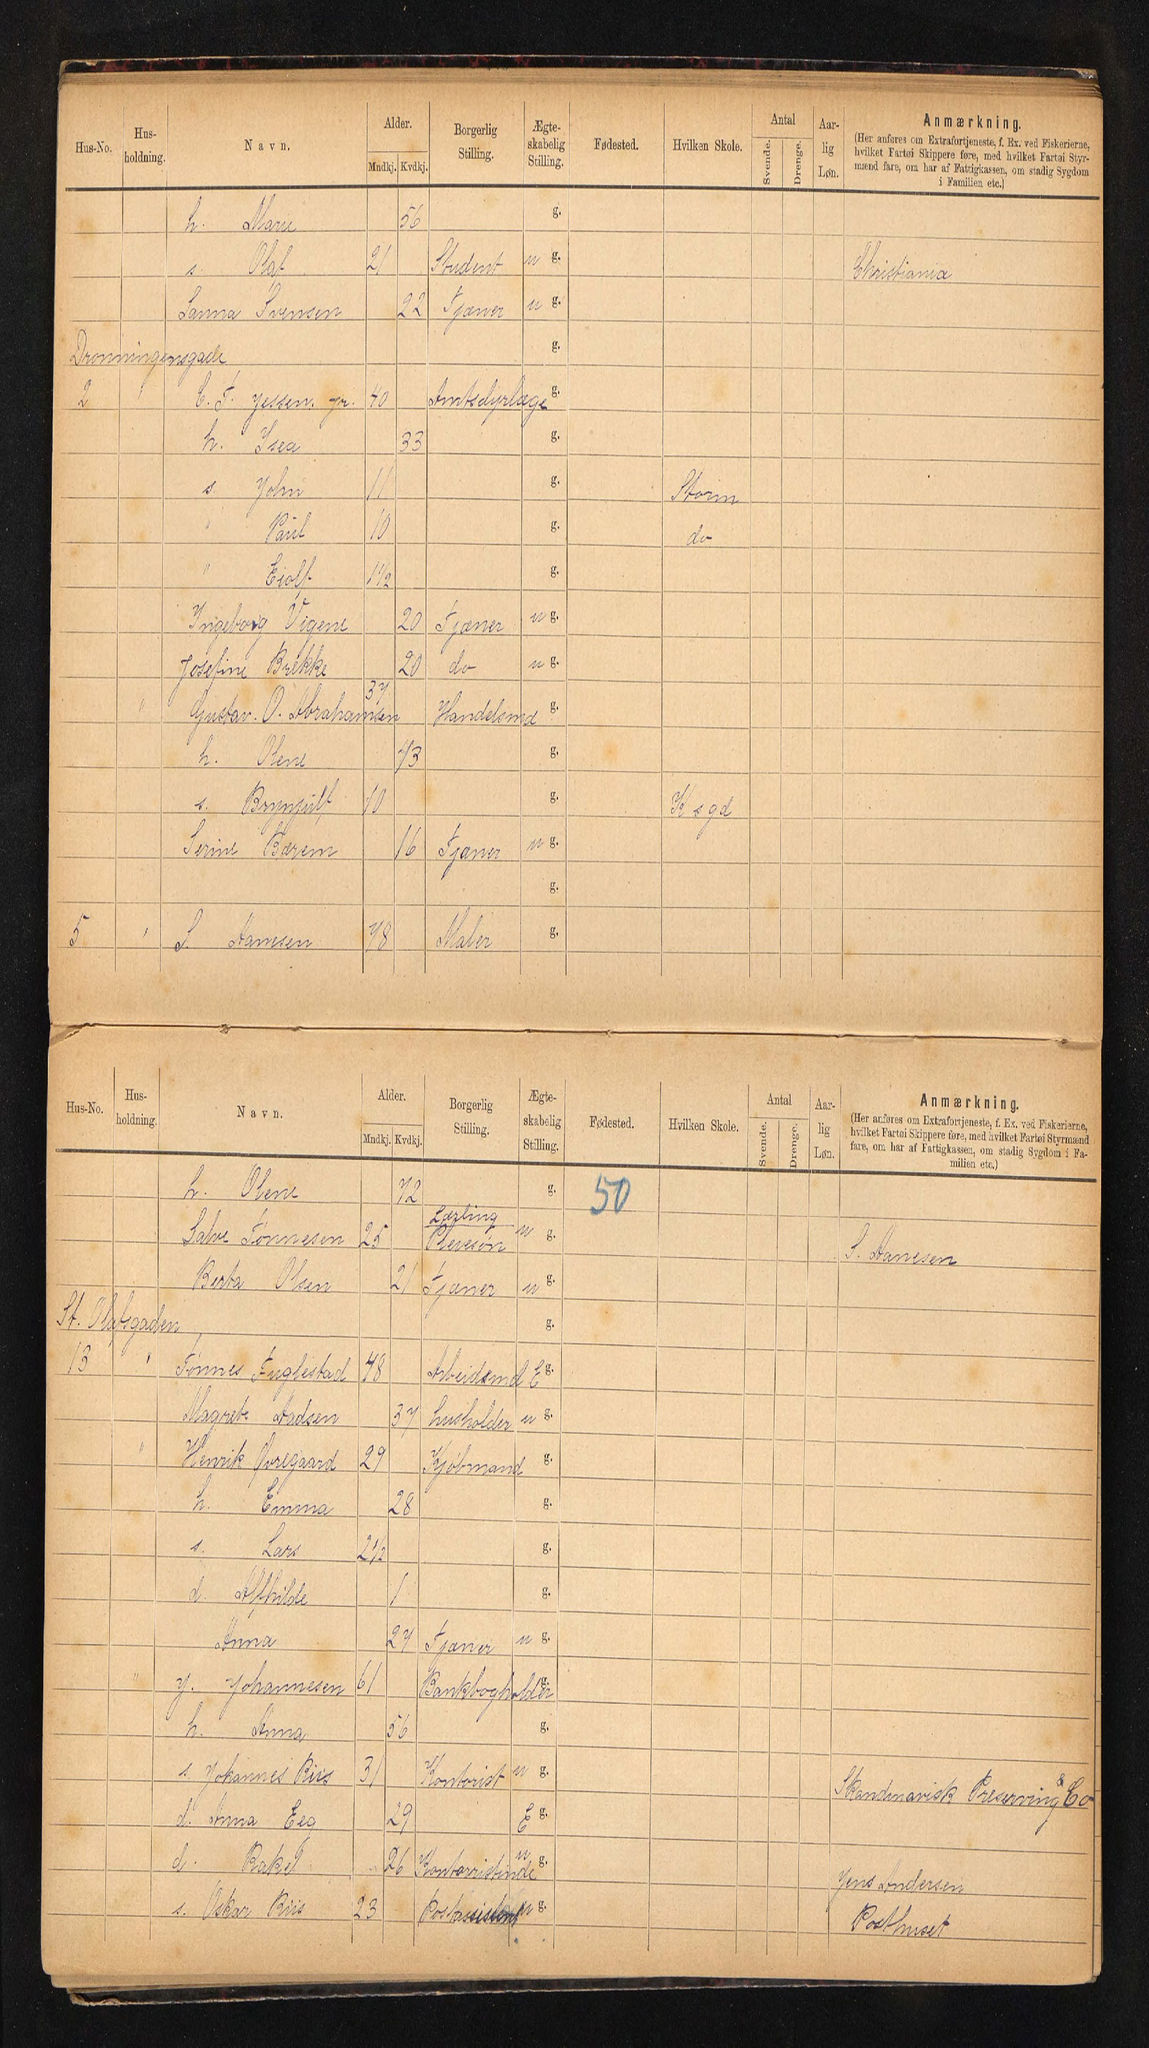 Hus-No. Hus-holdning. Navn. Alder. Mndkj. Kvdkj. Borgerlig Stilling. Ægte-skabelig Stilling. Fødested. Hvilken Skole. Antal Svende. Drenge. Aar-lig Løn. Anmærkning.
(Her anføres om Extrafortjeneste, f. Ex. ved Fiskerierne,
hvilket Fartøi Skippere føre, med hvilket Fartøi Styr-
mænd fare, om har af Fattigkassen, om stadig Sygdom
i Familien etc.)
h. Marie 56 g.
s. Olaf 21 Student u g. Christiania
Sanna Svensen 22 Tjæner u g.
Dronningensgade g.
2 " C. F. Jessen. jr. 40 Amtsdyrlæge g.
h. Isea 33 g.
s. John 11 g. Storm
" Paul 10 g. do
" Eiolf 1 1/2 g.
Ingeborg Vigene 20 Tjæner u g.
Josefine Brekke 20 do u g.
" Gustav. O. Abrahamsen 37 Handelsmd g.
h. Olene 43 g.
s. Brynjulf 10 g. K s g d
Serine Bærem 16 Tjæner u g.
g.
5 " S. Aanesen 48 Maler g.
Hus-No. Hus-holdning. Navn. Alder. Mndkj. Kvdkj. Borgerlig Stilling. Ægte-skabelig Stilling. Fødested. Hvilken Skole. Antal Svende. Drenge. Aar-lig Løn. Anmærkning.
(Her anføres om Extrafortjeneste, f. Ex. ved Fiskerierne,
hvilket Fartøi Skippere føre, med hvilket Fartøi Styrmænd
fare, om har af Fattigkassen, om stadig Sygdom i Fa-
milien etc.)
h. Olene 42 g. 50
Lærling
Salve Tønnesen 25 Pleiesøn u g. S. Aanesen
Berta Olsen 21 Tjæner u g.
St. Olafsgaden g.
13 " Tønnes Fuglestad 48 Arbeidsmd E g.
Magrete Aadsen 37 husholder u g.
" Henrik Øvregaard 29 Kjøbmand g.
h. Emma 28 g.
s. Lars 2 1/2 g.
d. Alfhilde 1 g.
Anna 27 Tjæner u g.
" J. Johannesen 61 Bankbogholder g.
h. Anna 56 g.
s. Johannes Riis 31 Kontorist u g. Skandinavisk Preserving & Co
d. Anna Eeg 29 E g.
d. Rakel 26 Kontorristinde u g. Jens Andersen
s. Oskar Riis 23 Postassistent u g. Posthuset